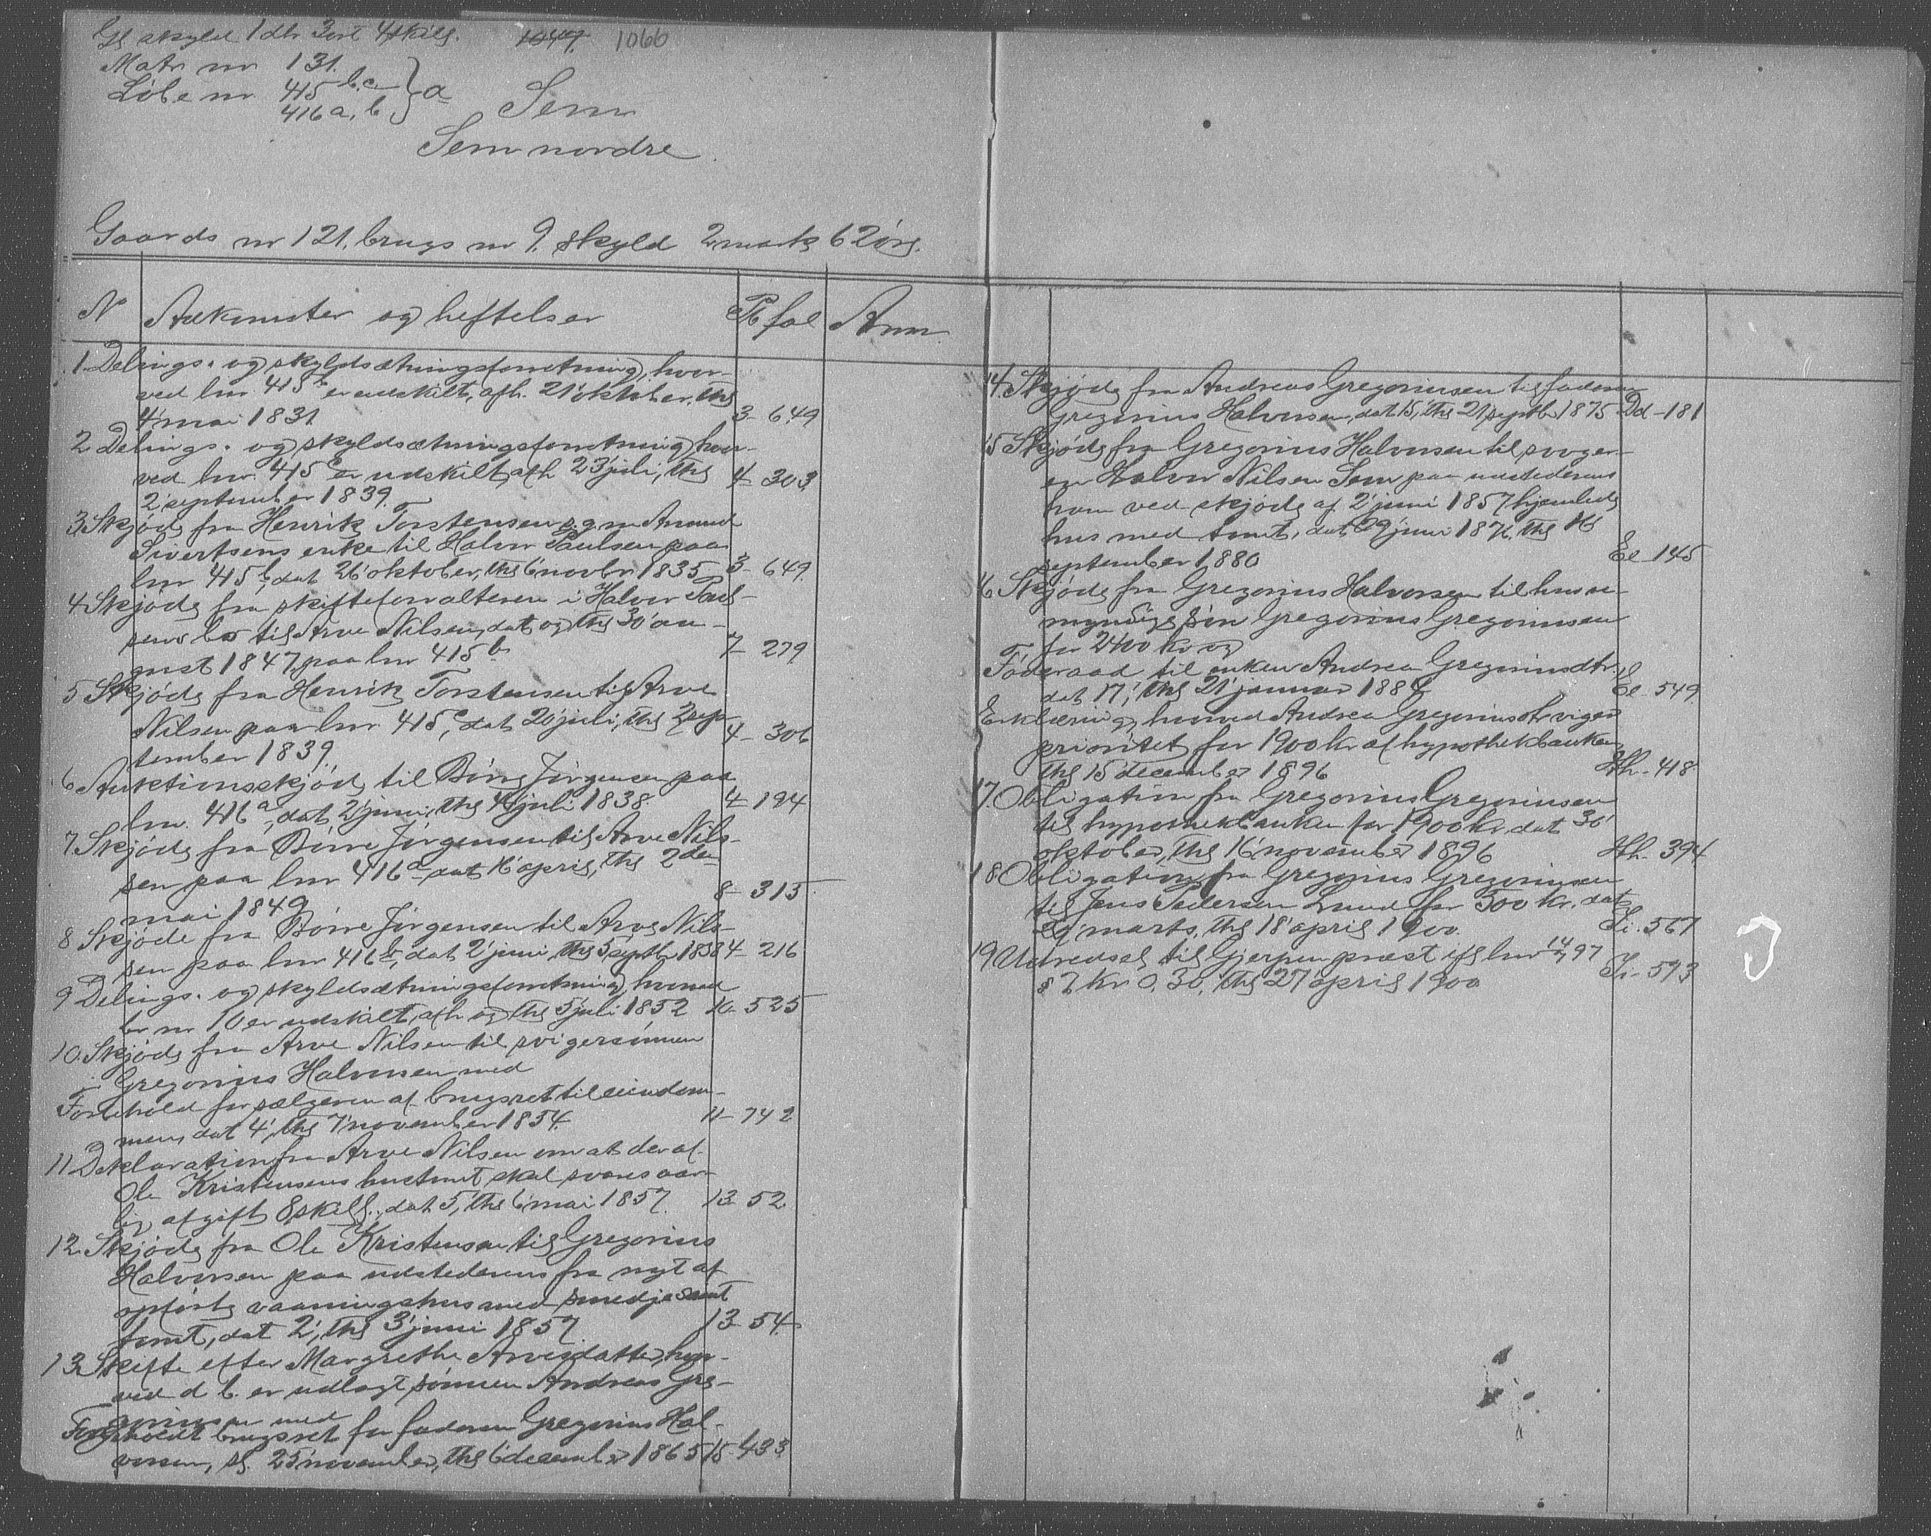 Gl skyld 1 dlr 3 ort 4 skilg. 1049 1066
Matr nr 131.
Löbe nr 415 b, c } a
416 a, b
Sem
Sem nordre.
Gaards nr 121, brugs nr 9, skyld 2 mark 62 öre.
N Adkomster og heftelser Pb fol Anm.
1 Delings- og skyldsætningsforretning, hvor-
ved lnr 415 b er udskilt, afh. 21' oktober, thg
4' mai 1831 3 - 649
2 Delings- og skyldsætningsforretning, hvor-
ved lnr 415 c er udskilt, afh 23' juli, thg 4 - 303
2' september 1839.
3 Skjöde fra Henrik Torstensen s. g. m. Amund
Sivertsens enke til Halvor Paulsen paa
lnr 415 b, dat 26' oktober, thg 6' novbr 1835 3 - 649.
4 Skjöde fra skifteforvalteren i Halvor Paul-
sens bo til Arve Nilsen, dat og thg 30' au-
gust 1847, paa lnr 415 b 7 - 279
5 Skjöde fra Henrik Torstensen til Arve
Nilsen paa lnr 415 c, dat 20' juli, thg 2' sep-
tember 1839. 4 - 306
6 Auktionsskjöde til Börre Jörgensen paa
lnr. 416 a, dat 2' juni, thg 4' juli 1838. 4 - 194
7 Skjöde fra Börre Jörgensen til Arve Nils-
sen paa lnr 416 a dat 16 april, thg 2 den
mai 1849 8 - 315
8 Skjöde fra Börre Jörgensen til Arve Nils-
sen paa lnr 416 b, dat 2' juni, thg 5 septbr 1838 4 - 216
9 Delings- og skyldsætningsforretning, hvorved
br nr 10 er udskilt, afh og thg 5' juli 1852 10 - 525
10. Skjöde fra Arve Nilsen til svigersönnen
Gregorius Halvorsen med
Forbehold for sælgeren af brugsret til eiendom-
men, dat 4', thg 7' november 1854. 11 - 742
11 Deklaration fra Arve Nilsen om at der af
Ole Kristensens hustomt skal svares aar-
lig afgift 8 skilg., dat 5', thg 6' mai 1857. 13 - 52
12. Skjöde fra Ole Kristensen til Gregorius
Halvorsen paa udstederens fra nyt af
opförte vaaningshus med smedje samt
tomt, dat 2', thg 3' juni 1857. 13 - 54
13 Skifte efter Margrethe Arvesdatter, hvor-
ved d. b. er udlagt sönnen Andreas Gre-
goriusen med
Forbeholdt brugsret for faderen Gregorius Hal-
vorsen, sl. 25' november, thg 6' december 1865 15 - 433
14 Skjöde fra Andreas Gregoriussen til faderen
Gregorius Halvorsen, dat 15', thg 21' septbr 1875 Dd - 181
15 Skjöde fra Gregorius Halvorsen til svoger-
en Halvor Nilsen Sem paa udstederens
ham ved skjöde af 2' juni 1857 hjemlede
hus med tomt, dat 29' juni 1876, thg 16'
september 1880 Ee - 145
16 Skjöde fra Gregorius Halvorsen til hans u-
myndige sön Gregorius Gregoriussen
for 2400 kr og
Föderaad til enken Andrea Gregoriusdtr.
dat 17', thg 21' januar 1884 Ee - 549
Erklæring, hvorved Andrea Gregoriusdtr viger
prioritet for 1900 kr af hypothekbanken,
thg 15' december 1896 Hh - 418
17. Obligation fra Gregorius Gregoriussen
til hypothekbanken for 1900 kr, dat 30'
oktober, thg 16' november 1896 Hh. 394
18 Obligation fra Gregorius Gregoriussen
til Jens Pedersen Lund for 500 kr. dat
29' marts, thg 18' april 1900. Ii. 567
19 Udredsel til Gjerpen præst ifg lnr 97
§ 7 kr 0.30, thg 27 april 1900 Ii - 593